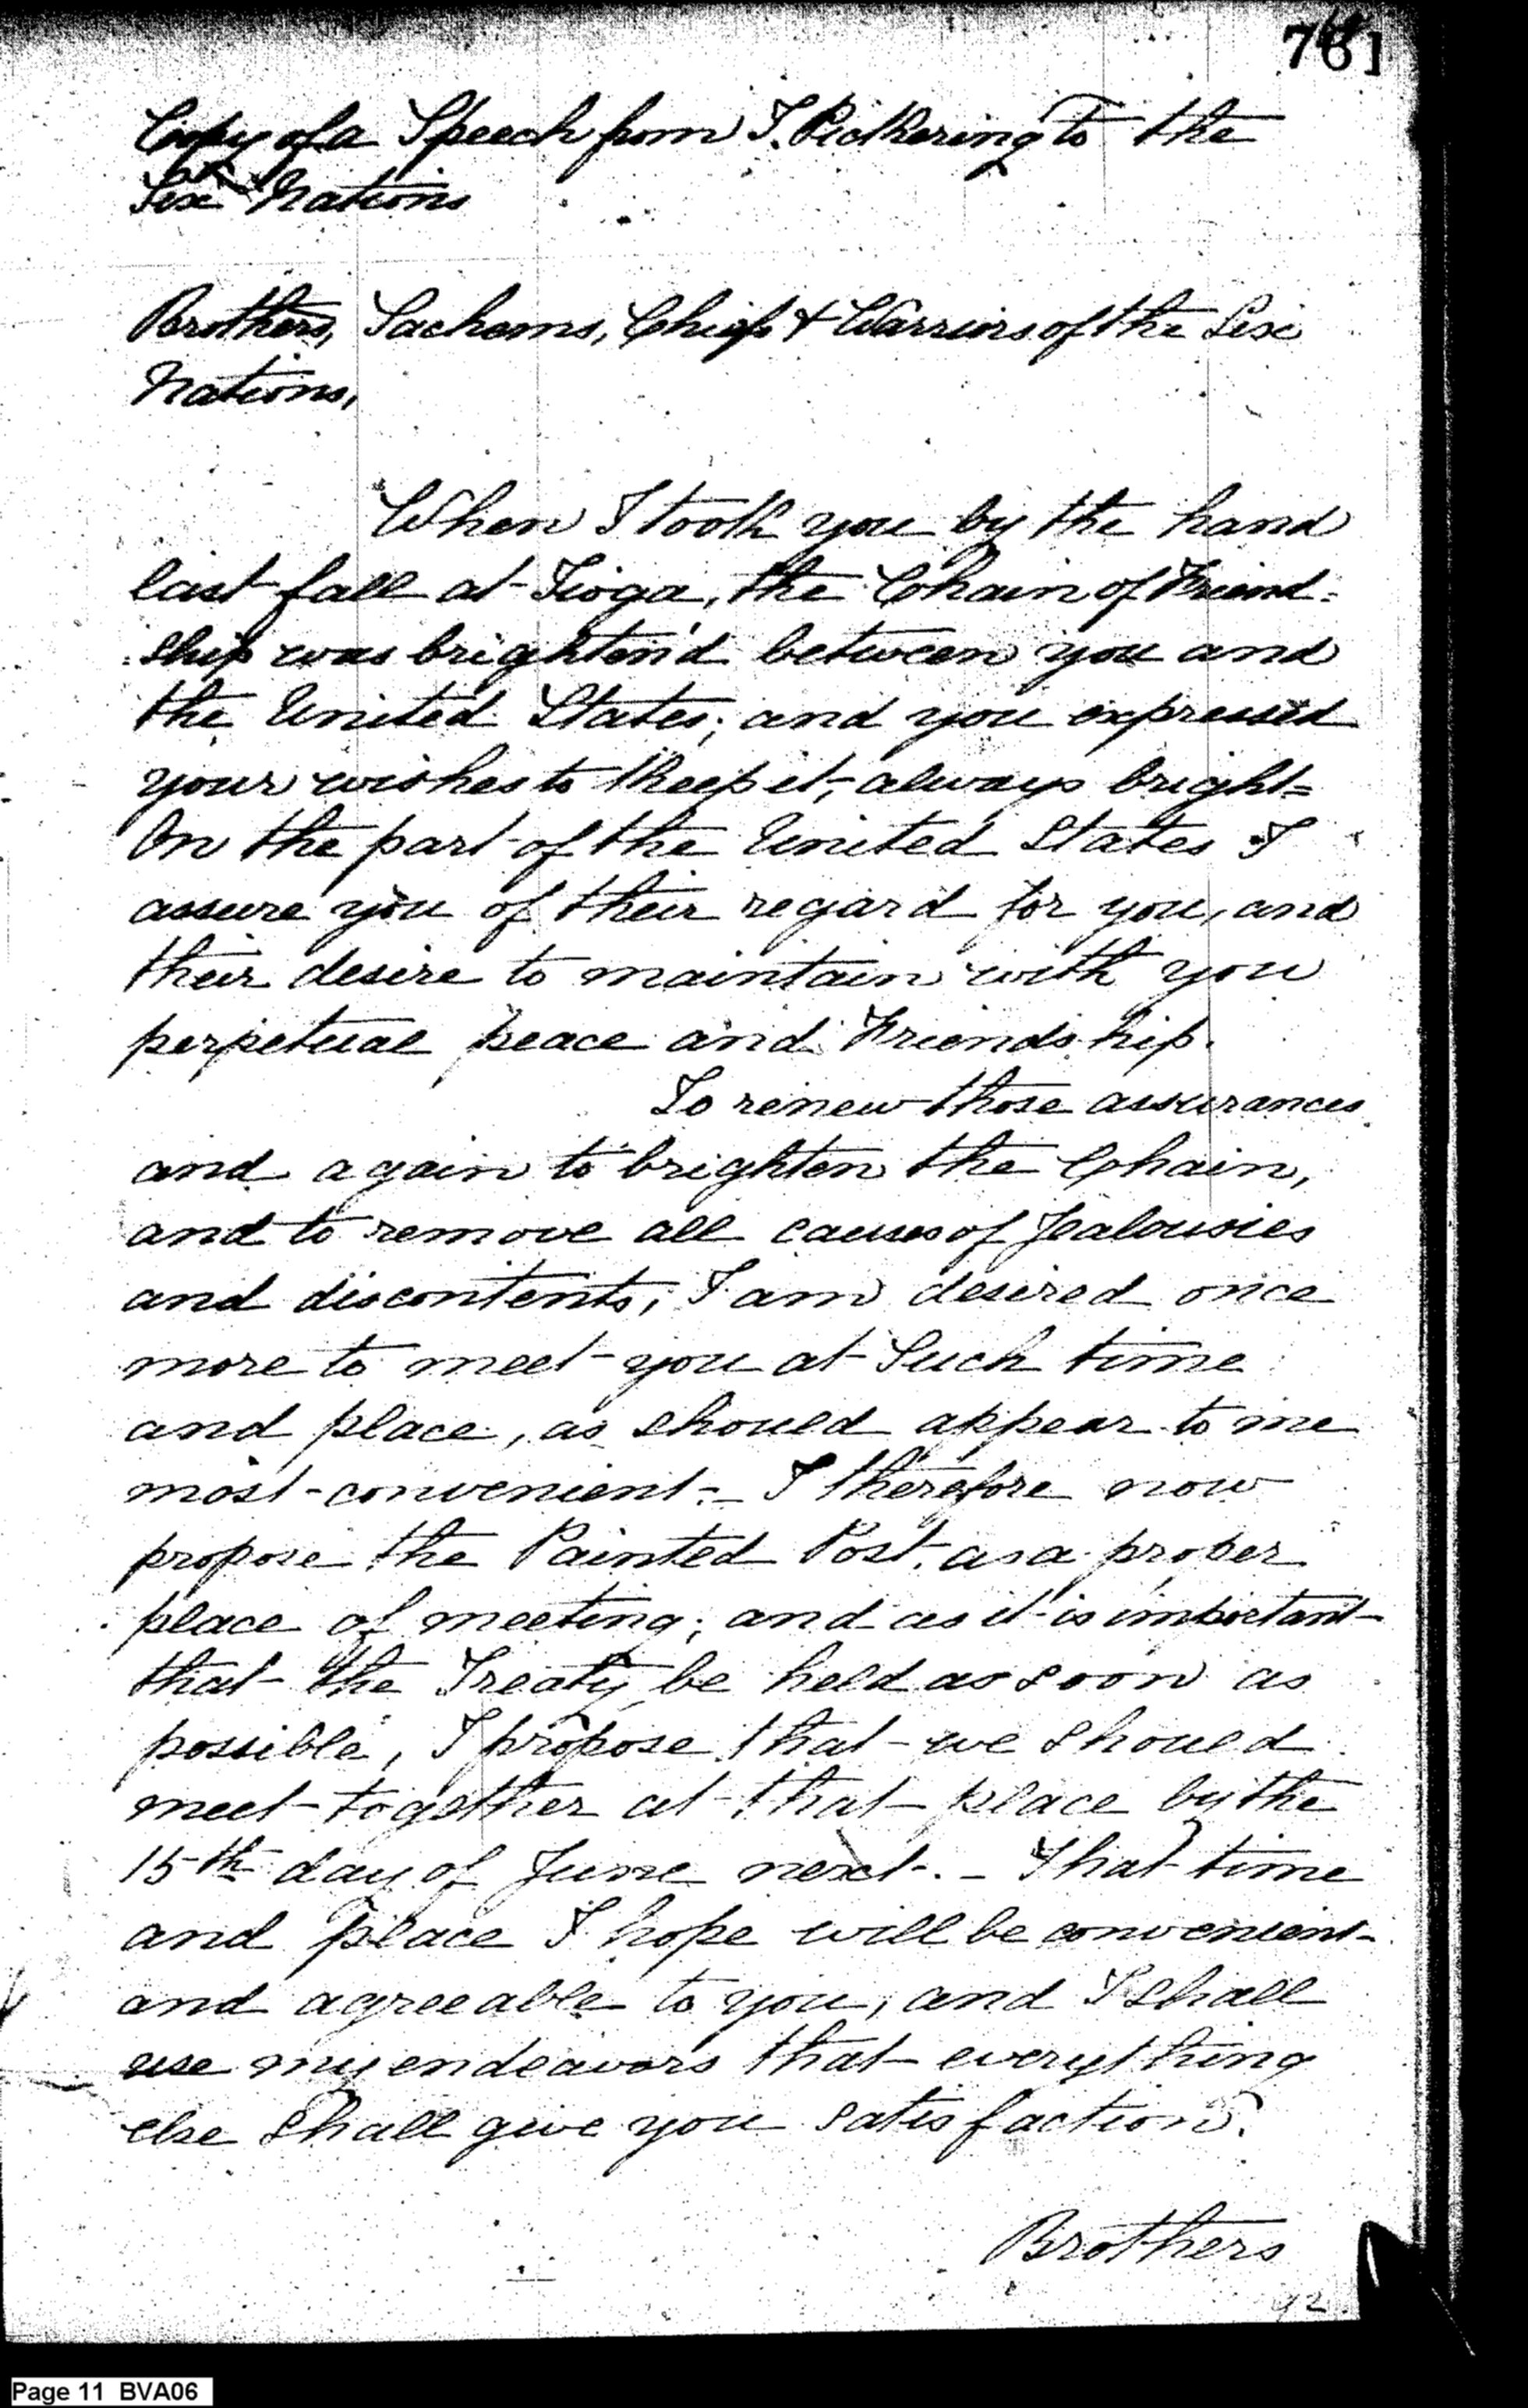 Copy of a Speech from T. Pickering to the
Six Nations
Brothers, Sachems, Chiefs & Warriors of the Six
Nations,
When I took you by the hand
last fall at Tioga, the Chain of Friend=
=ship was brighten'd between you and
the United States; and you expressed
your wishes to keep it, always bright=
On the part of the United States I
assure you of their regard for you, and
their desire to maintain with you
perpetual peace and Friendship.
To renew those assurances
and again to brighten the Chain,
and to remove all causes of Jealousies
and discontents, I am desired once
more to meet you at Such time
and place, as should appear to me
most convenient. _ I therefore now
propose the Painted Post, as a proper
place of meeting; and as it is important
that the Treaty be held as soon as
possible, I propose that we should
meet together at that place by the
15th day of June next. _ That time
and place I hope will be convenient
and agreeable to you, and I shall
use my endeavors that everything
else shall give you satisfaction.
Brothers
92
Page 11 BVA06